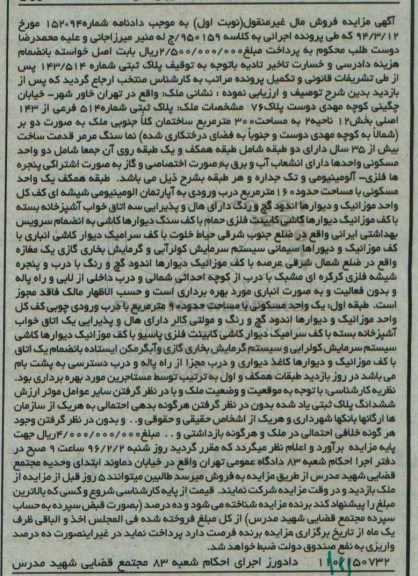 آگهی مزایده فروش مال غیرمنقول(نوبت اول) به موجب دادنامه شماره۱۵۲۰۹۴ مورخ
۹۴/۳/۱۲ که طی پرونده اجرایی به کلاسه ۹۵۰۱۵۹/ج له منیر میرزاجانی و علیه محمدرضا
دوست طلب محکوم به پرداخت مبلغ۲/۵۰۰/۰۰۰/۰۰۰ریال بابت اصل خواسته بانضمام
هزینه دادرسی و خسارت تاخیر تادیه باتوجه به توقیف پلاک ثبتی شماره ۱۴۳/۵۱۴ پس
از طی تشریفات قانونی و تکمیل پرونده مراتب به کارشناس منتخب ارجاع گردید که پس از
بازدید بدین شرح توصیف و ارزیابی نموده : نشانی ملک: واقع در تهران خاور شهر- خیابان
چگینی کوچه مهدی دوست پلاک۷۶ مشخصات ملک: پلاک ثبتی شماره۵۱۴ فرعی از ۱۴۳
اصلی بخش۱۲ ناحیه۳ به مساحت۳۰۰ مترمربع ساختمان کلاً جنوبی ملک به صورت دو بر
(شمالاً به کوچه مهدی دوست و جنوباً به فضای درختکاری شده) نما سنگ مرمر قدمت ساخت
بیش از ۳۵ سال دارای دو طبقه شامل طبقه همکف و یک طبقه روی آن جمعا شامل دو واحد
مسکونی واحدها دارای انشعاب آب و برق به‌صورت اختصاصی و گاز به صورت اشتراکی پنجره
ها فلزی- آلومینیومی و تک جداره و هر طبقه بشرح ذیل می باشد. طبقه همکف یک واحد
مسکونی با مساحت حدود۱۶۰ مترمربع درب ورودی به آپارتمان الومینیومی شیشه ای کف کل
واحد موزائیک و دیوارها اندود گچ و رنگ دارای هال و پذیرایی سه اتاق خواب آشپزخانه بسته
با کف موزائیک دیوارها کاشی کابینت فلزی حمام با کف سنگ دیوارها کاشی به انضمام سرویس
بهداشتی ایرانی واقع در ضلع جنوب شرقی حیاط خلوت با کف سرامیک دیوار کاشی انباری با
کف موزائیک و دیوارها سیمانی سیستم سرمایش کولرآبی و گرمایش بخاری گازی یک مغازه
واقع در ضلع شمال شرقی عرصه با کف موزائیک دیوارها اندود گچ و رنگ با درب و پنجره
شیشه فلزی کرکره ای مشبک با درب از کوچه احداثی شمالی و درب داخلی از لابی و راه پاله
و بدون فعالیت و به صورت انباری مورد بهره برداری است و حسب الاظهار مالک فاقد مجوز
است. طبقه اول: یک واحد مسکونی با مساحت حدود۹۰ مترمربع با درب ورودی چوبی کف کل
واحد موزائیک و دیوارها اندود گچ و رنگ و مولتی کالر دارای هال و پذیرایی یک اتاق خواب
آشپزخانه بسته با کف سرامیک دیوار کاشی کابینت فلزی پاسیو با کف موزائیک دیوارها کاشی
سیستم سرمایش کولرابی و سیستم گرمایش بخاری گازی وآبگرمکن ایستاده بانضمام یک اتاق
با کف موزائیک و دیوارها کاغذ دیواری و درب مجزا از راه پاله و درب دسترسی به پشت بام
می باشد در روز بازدید طبقات همکف و اول به ترتیب توسط مستاجرین مورد بهره برداری بود.
نظریه کارشناسی: با توجه به موقعیت و وضعیت ملک و با در نظر گرفتن سایر عوامل موثر ارزش
ششدانگ پلاک ثبتی یاد شده بدون در نظر گرفتن هرگونه بدهی احتمالی به هریک از سازمان
ها ارگانها بانکها شهرداری و هریک از اشخاص حقیقی و حقوقی و.. و بدون در نظر گرفتن وجود
هر گونه خلافی احتمالی در ملک و هرگونه بازداشتی و . . . مبلغ۴/۰۰۰/۰۰۰/۰۰۰ریال جهت
پایه مزایده برآورد و اعلام نظر میگردد که مقرر گردید روز شنبه ۹۶/۲/۲ ساعت ۹ صبح در
دفتر اجرا احکام شعبه ۸۳ دادگاه عمومی تهران واقع در خیابان دماوند ابتدای وحدیه مجتمع
قضایی شهید مدرس از طریق مزایده به فروش میرسد طالبین میتوانند ۵ روز قبل از مزایده از
ملک بازدید و در وقت مزایده شرکت نمایند. قیمت از پایه کارشناسی شروع و کسی که بالاترین
مبلغ را پیشنهاد کند برنده مزایده شناخته می شود و ده درصد (بصورت قبض سپرده به حساب
سپرده مجتمع قضایی شهید مدرس) از کل مبلغ فروخته شده فی المجلس اخذ و الباقی ظرف
یک ماه از تاریخ برگزاری مزایده برنده فرصت دارد پرداخت نماید در غیراینصورت ده درصد
واریزی به نفع صندوق دولت ضبط خواهد شد.
۱۱۰۶۱۵۰۷۳۲ دادورز اجرای احکام شعبه ۸۳ مجتمع قضایی شهید مدرس